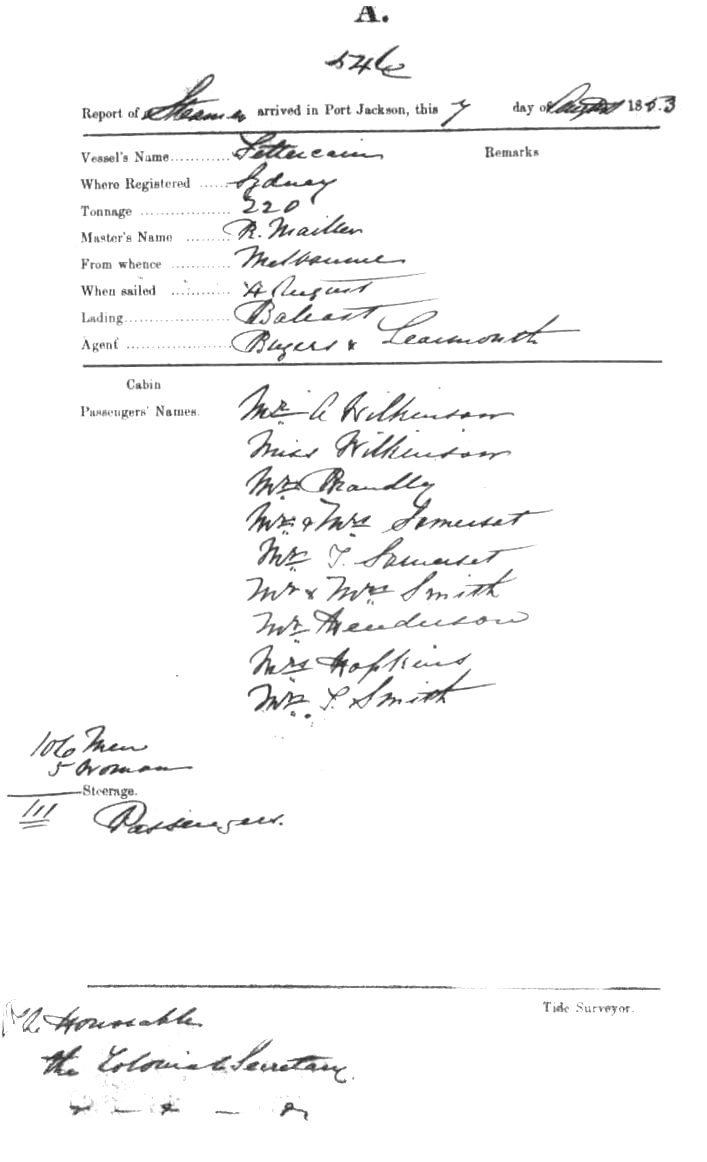 A.
546
Report of Steamer arrived in Port Jackson, this 7 day of August 1853
Vessel's Name............ Fettercairn Remarks
Where Registered ...... Sydney
Tonnage .................. 220
Master's Name ......... R.
From whence ............ Melbourne
When sailed ............ 4 August
Lading..................... Balast
Agent ..................... & Learmonth
Cabin
Passengers' Names. Mr A Wilkinson
Miss Wilkinson
Mr
Mr & Mrs Somerset
Mr T. Somerset
Mr & Mrs Smith
Mr Henderson
Mrs Hopkins
Mr Smith
106 Men
5 Woman
Steerage.
111 Passengers.
Tide Surveyor.
Honorable
the Colonial Secretary